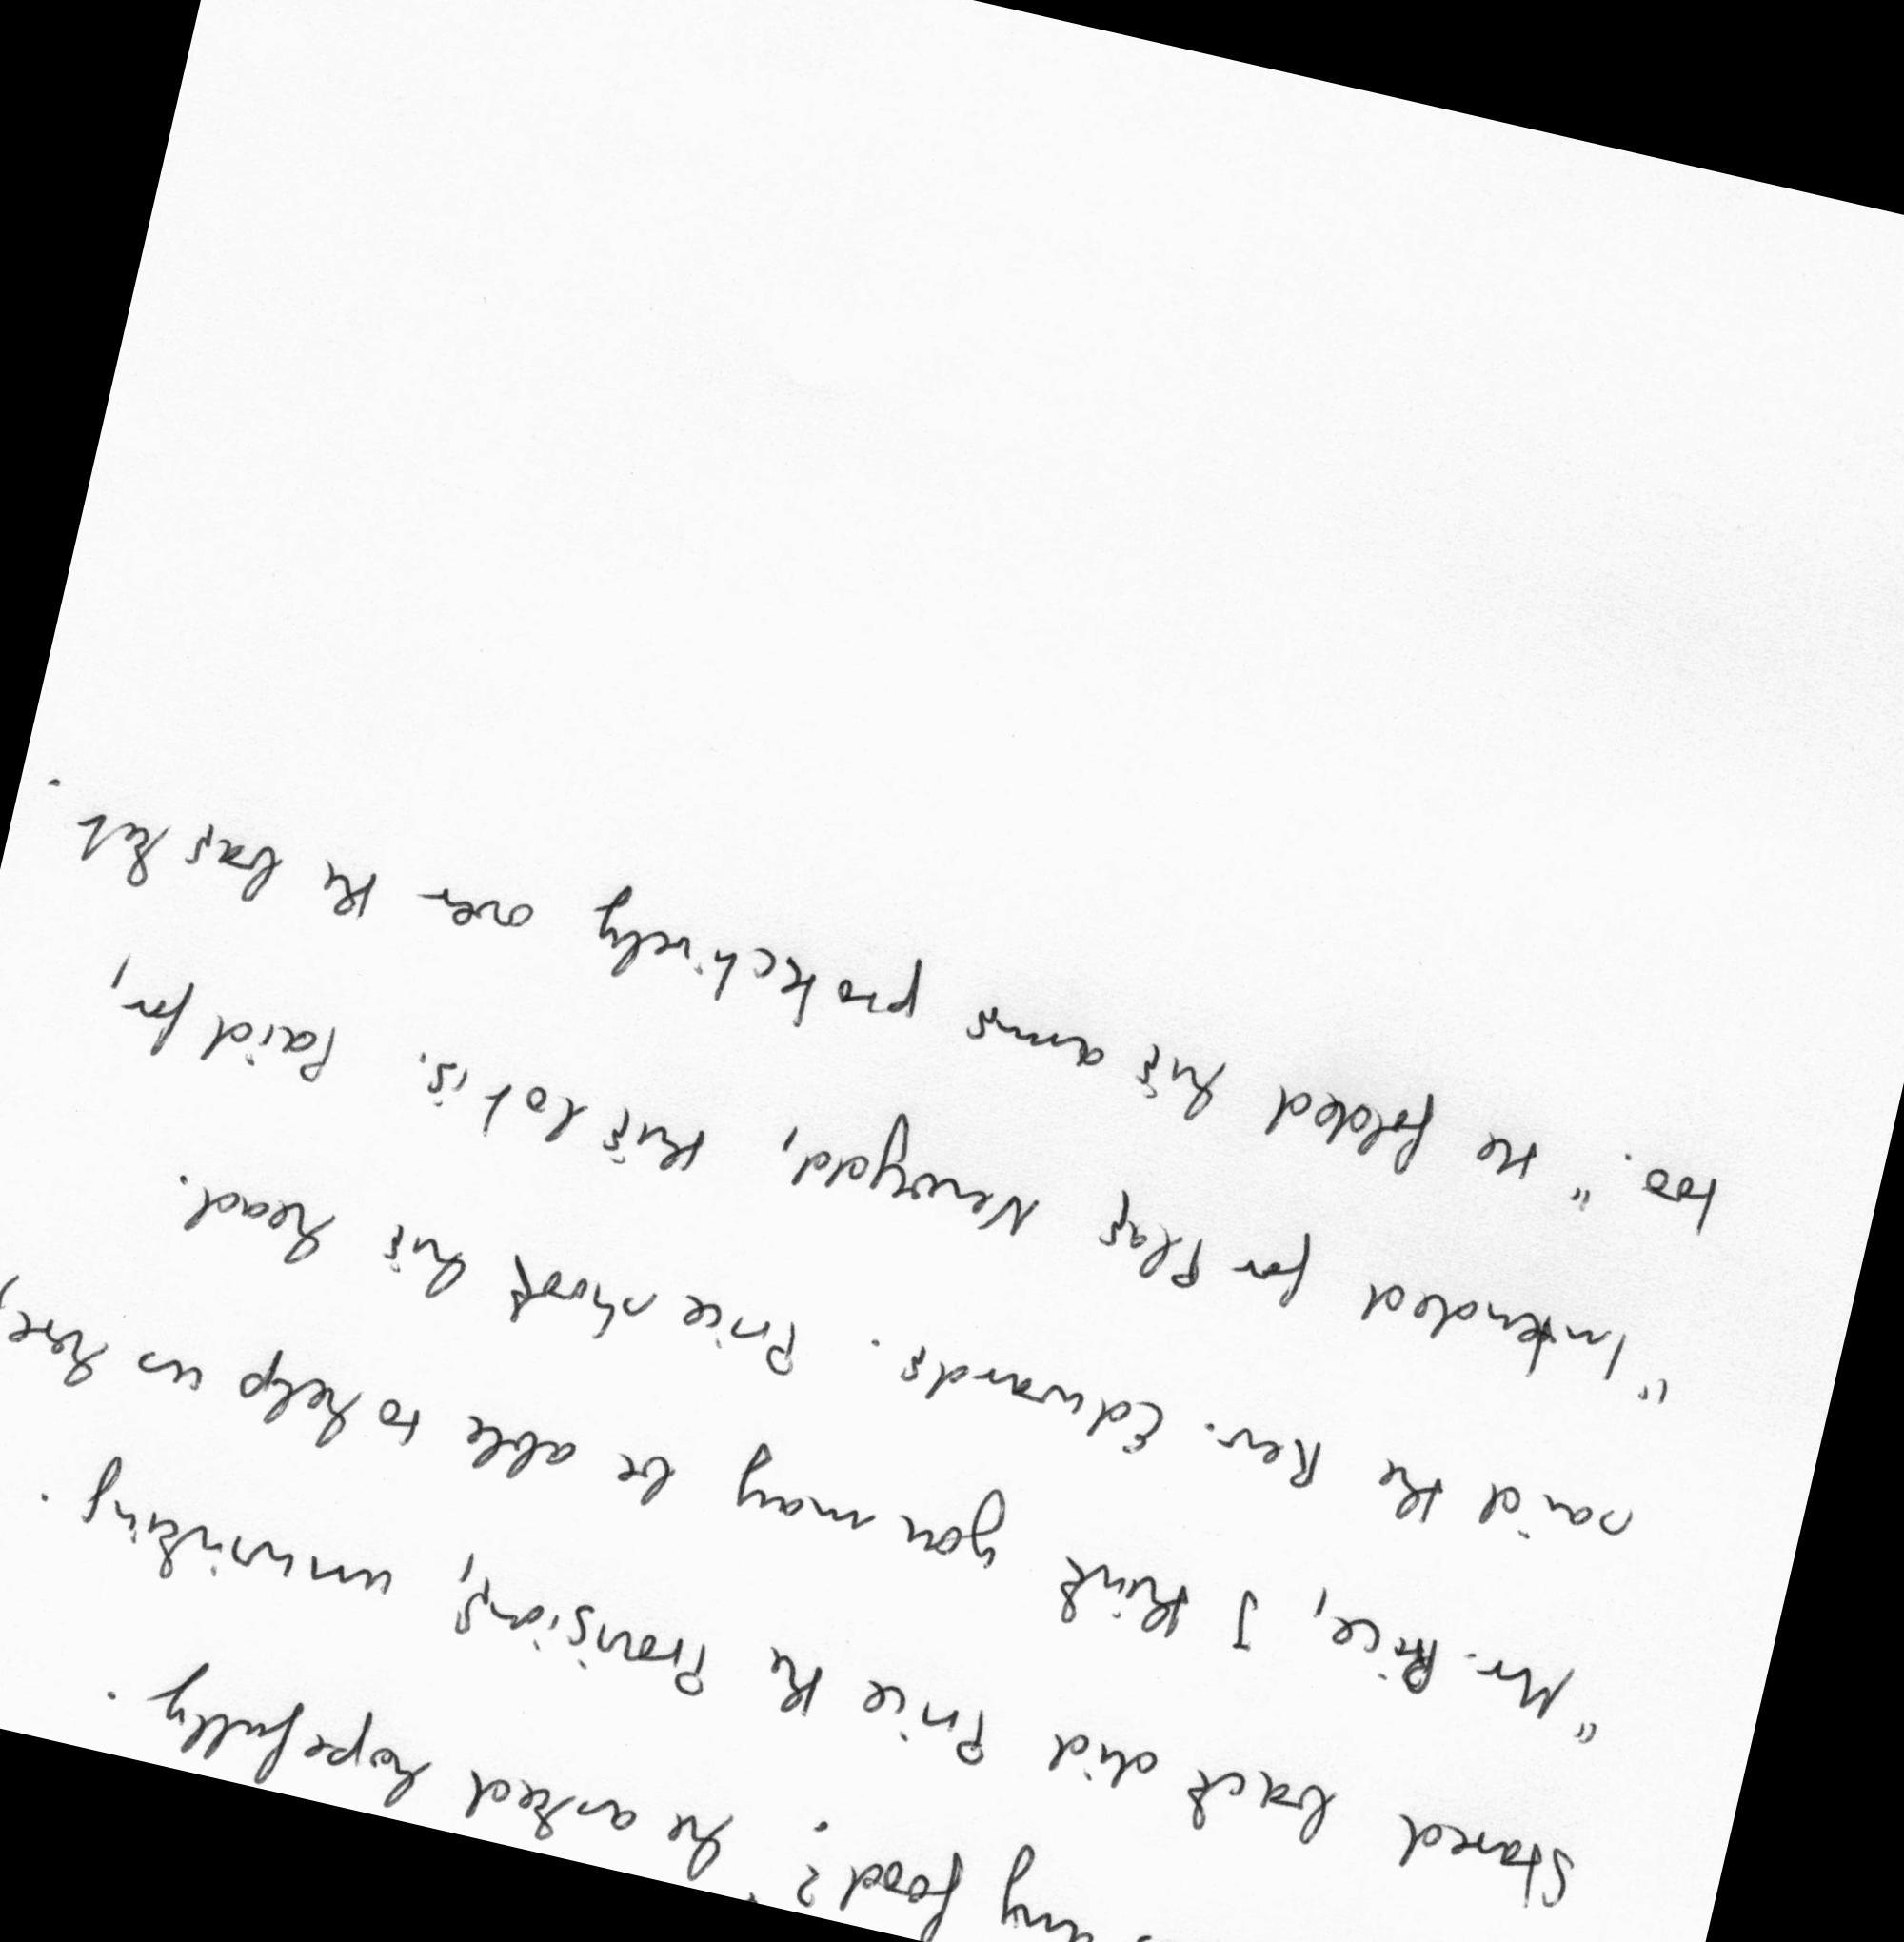 any food?" he asked hopefully.
Stared back did Price the Provisions, unwinking.
"Mr. Price, I think you may be able to help us here,
said the Rev. Edwards. Price shook his head.
"Intended for Plas Newydd, this lot is. Paid for,
too." He folded his arms protectively over the basket.